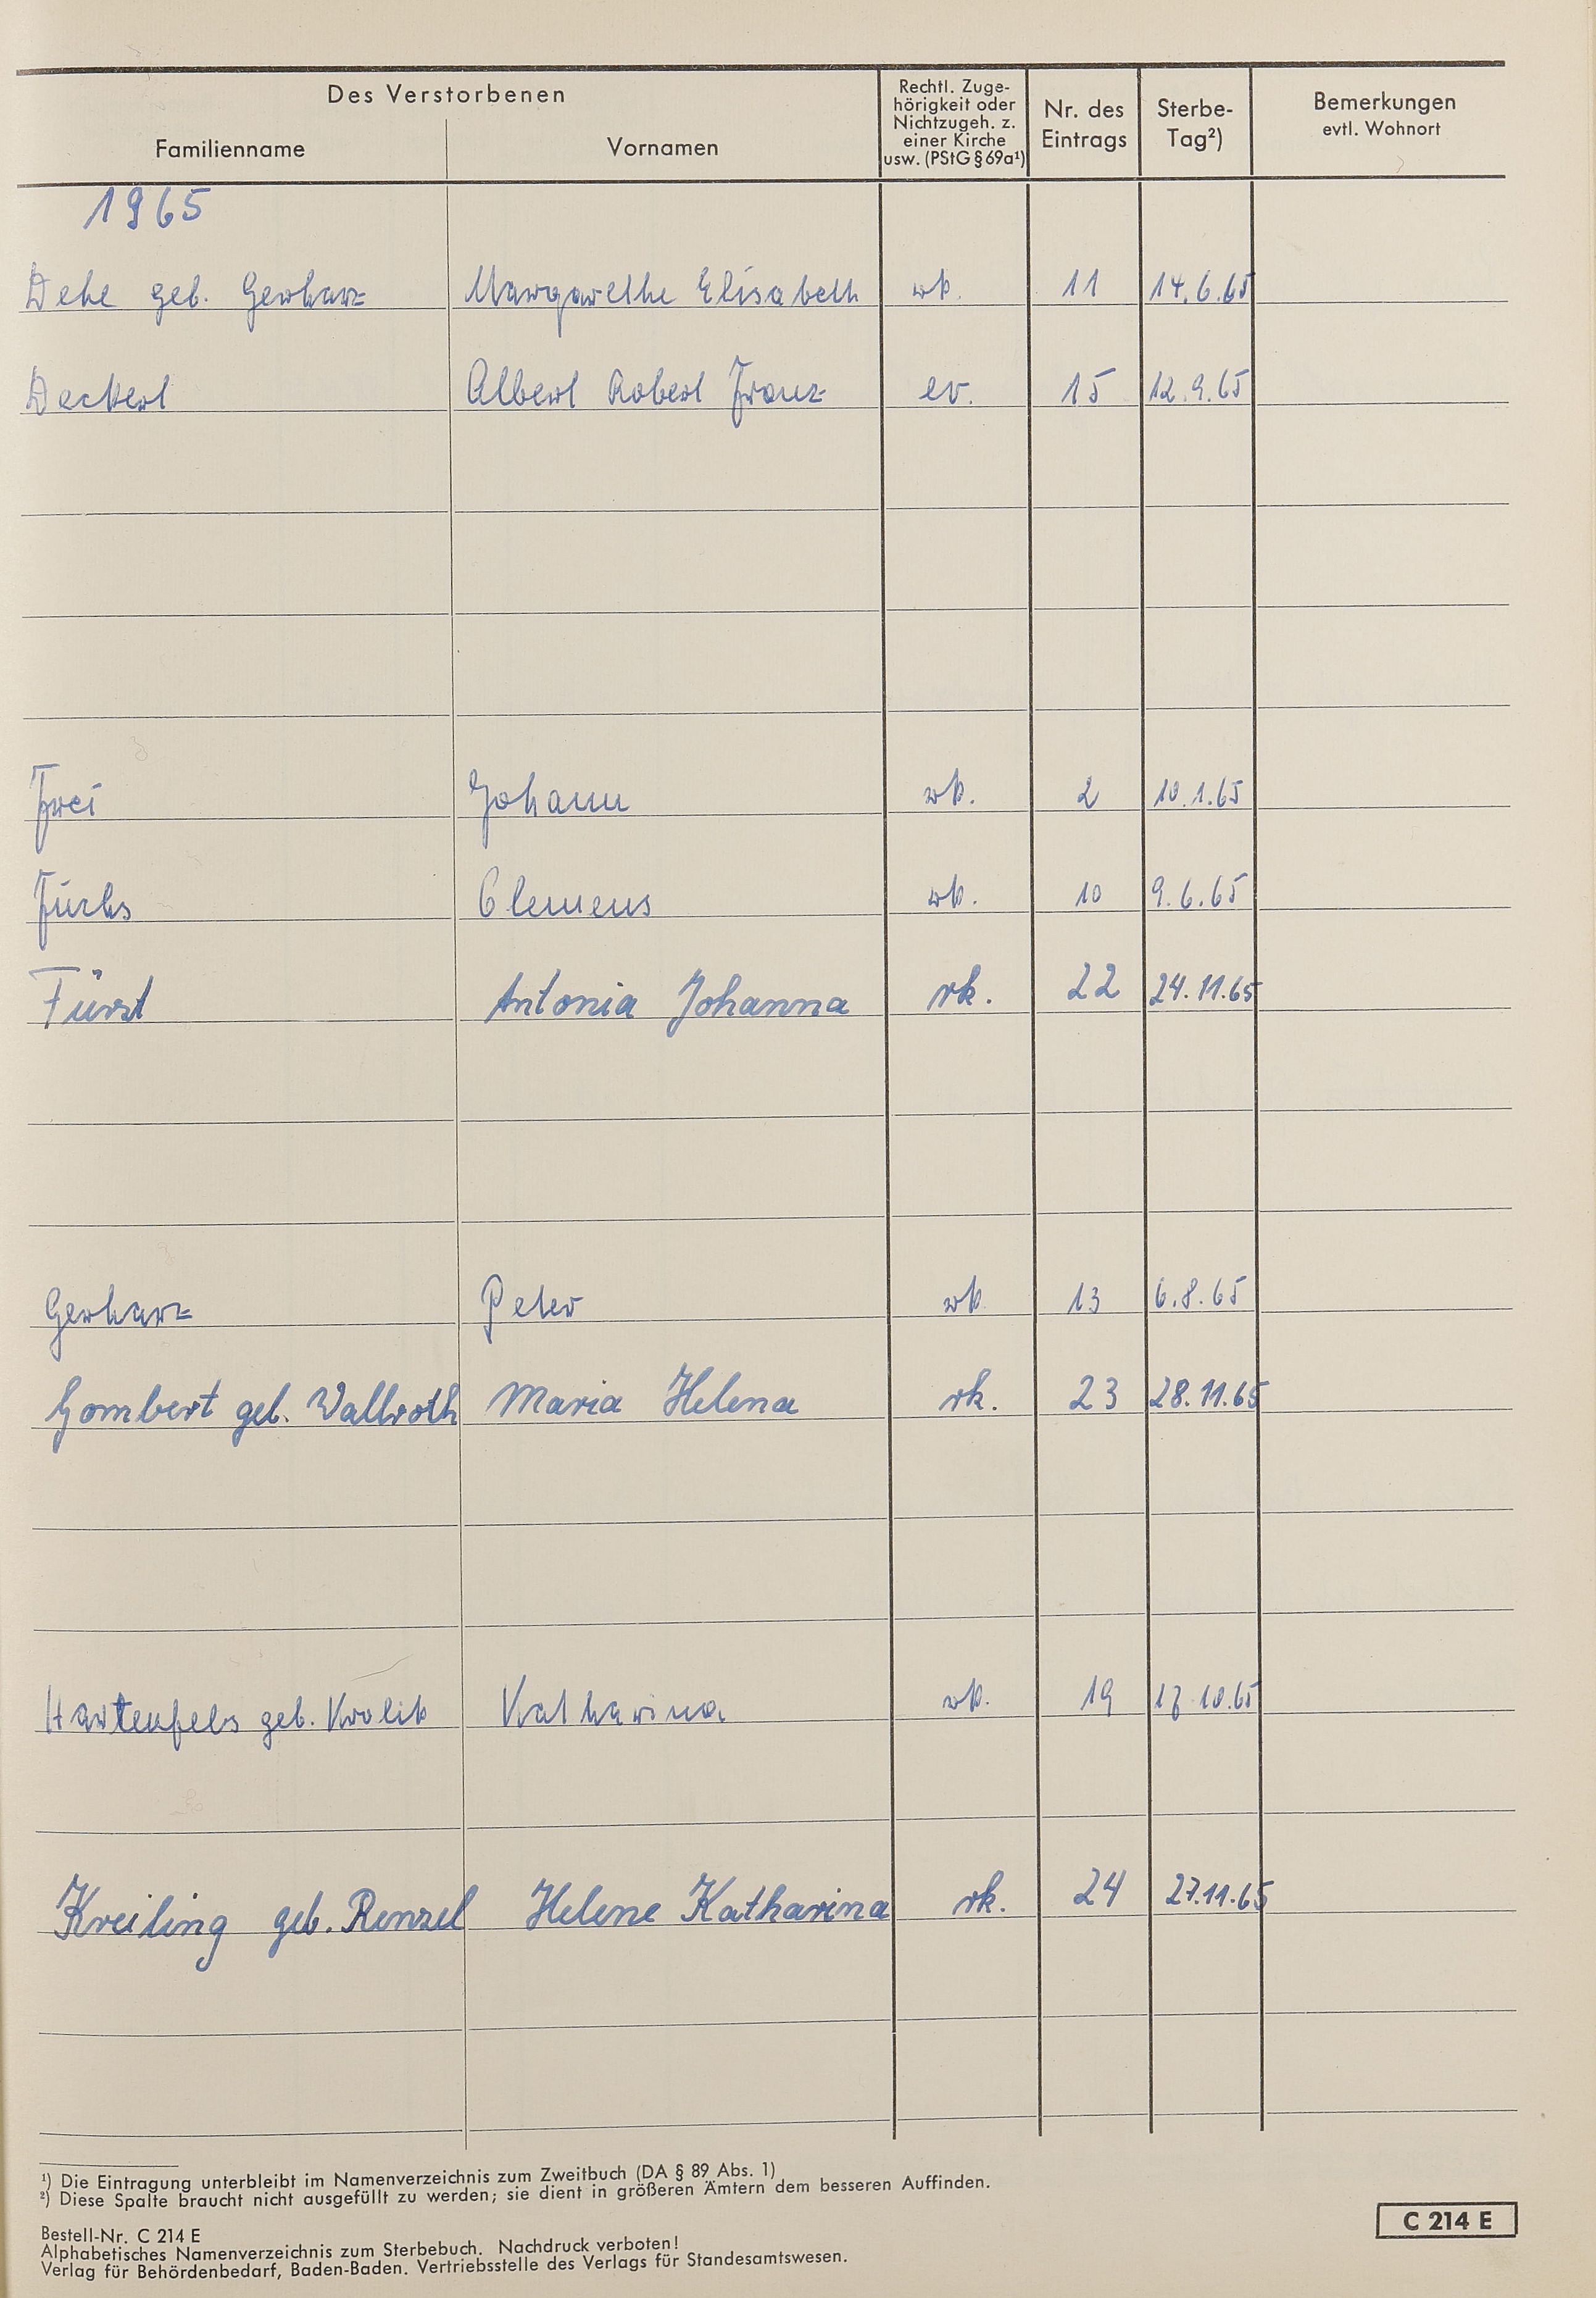 Des Verstorbenen
Familienname Vornamen Rechtl. Zuge-
hörigkeit oder
Nichtzugeh. z.
einer Kirche
usw. (PStG § 69a¹) Nr. des
Eintrags Sterbe-
Tag²) Bemerkungen
evtl. Wohnort
1965
Dehe geb. Gerharz Margarethe Elisabeth rk. 11 14.6.65
Deckert Albert Robert Franz ev. 15 12.9.65
Frei Johann rk. 2 10.1.65
Fuchs Clemens rk. 10 9.6.65
Fürst Antonia Johanna rk. 22 24.11.65
Gerharz Peter rk. 13 6.8.65
Gombert geb. Wallroth Maria Helena rk. 23 28.11.65
Hartenfels geb. Krolik Katharina rk. 19 17.10.65
Kreiling geb. Renzel Helene Katharina rk. 24 27.11.65
¹) Die Eintragung unterbleibt im Namenverzeichnis zum Zweitbuch (DA § 89 Abs. 1)
²) Diese Spalte braucht nicht ausgefüllt zu werden; sie dient in größeren Ämtern dem besseren Auffinden.
Bestell-Nr. C 214 E
Alphabetisches Namenverzeichnis zum Sterbebuch. Nachdruck verboten!
Verlag für Behördenbedarf, Baden-Baden. Vertriebsstelle des Verlags für Standesamtswesen.
C 214 E